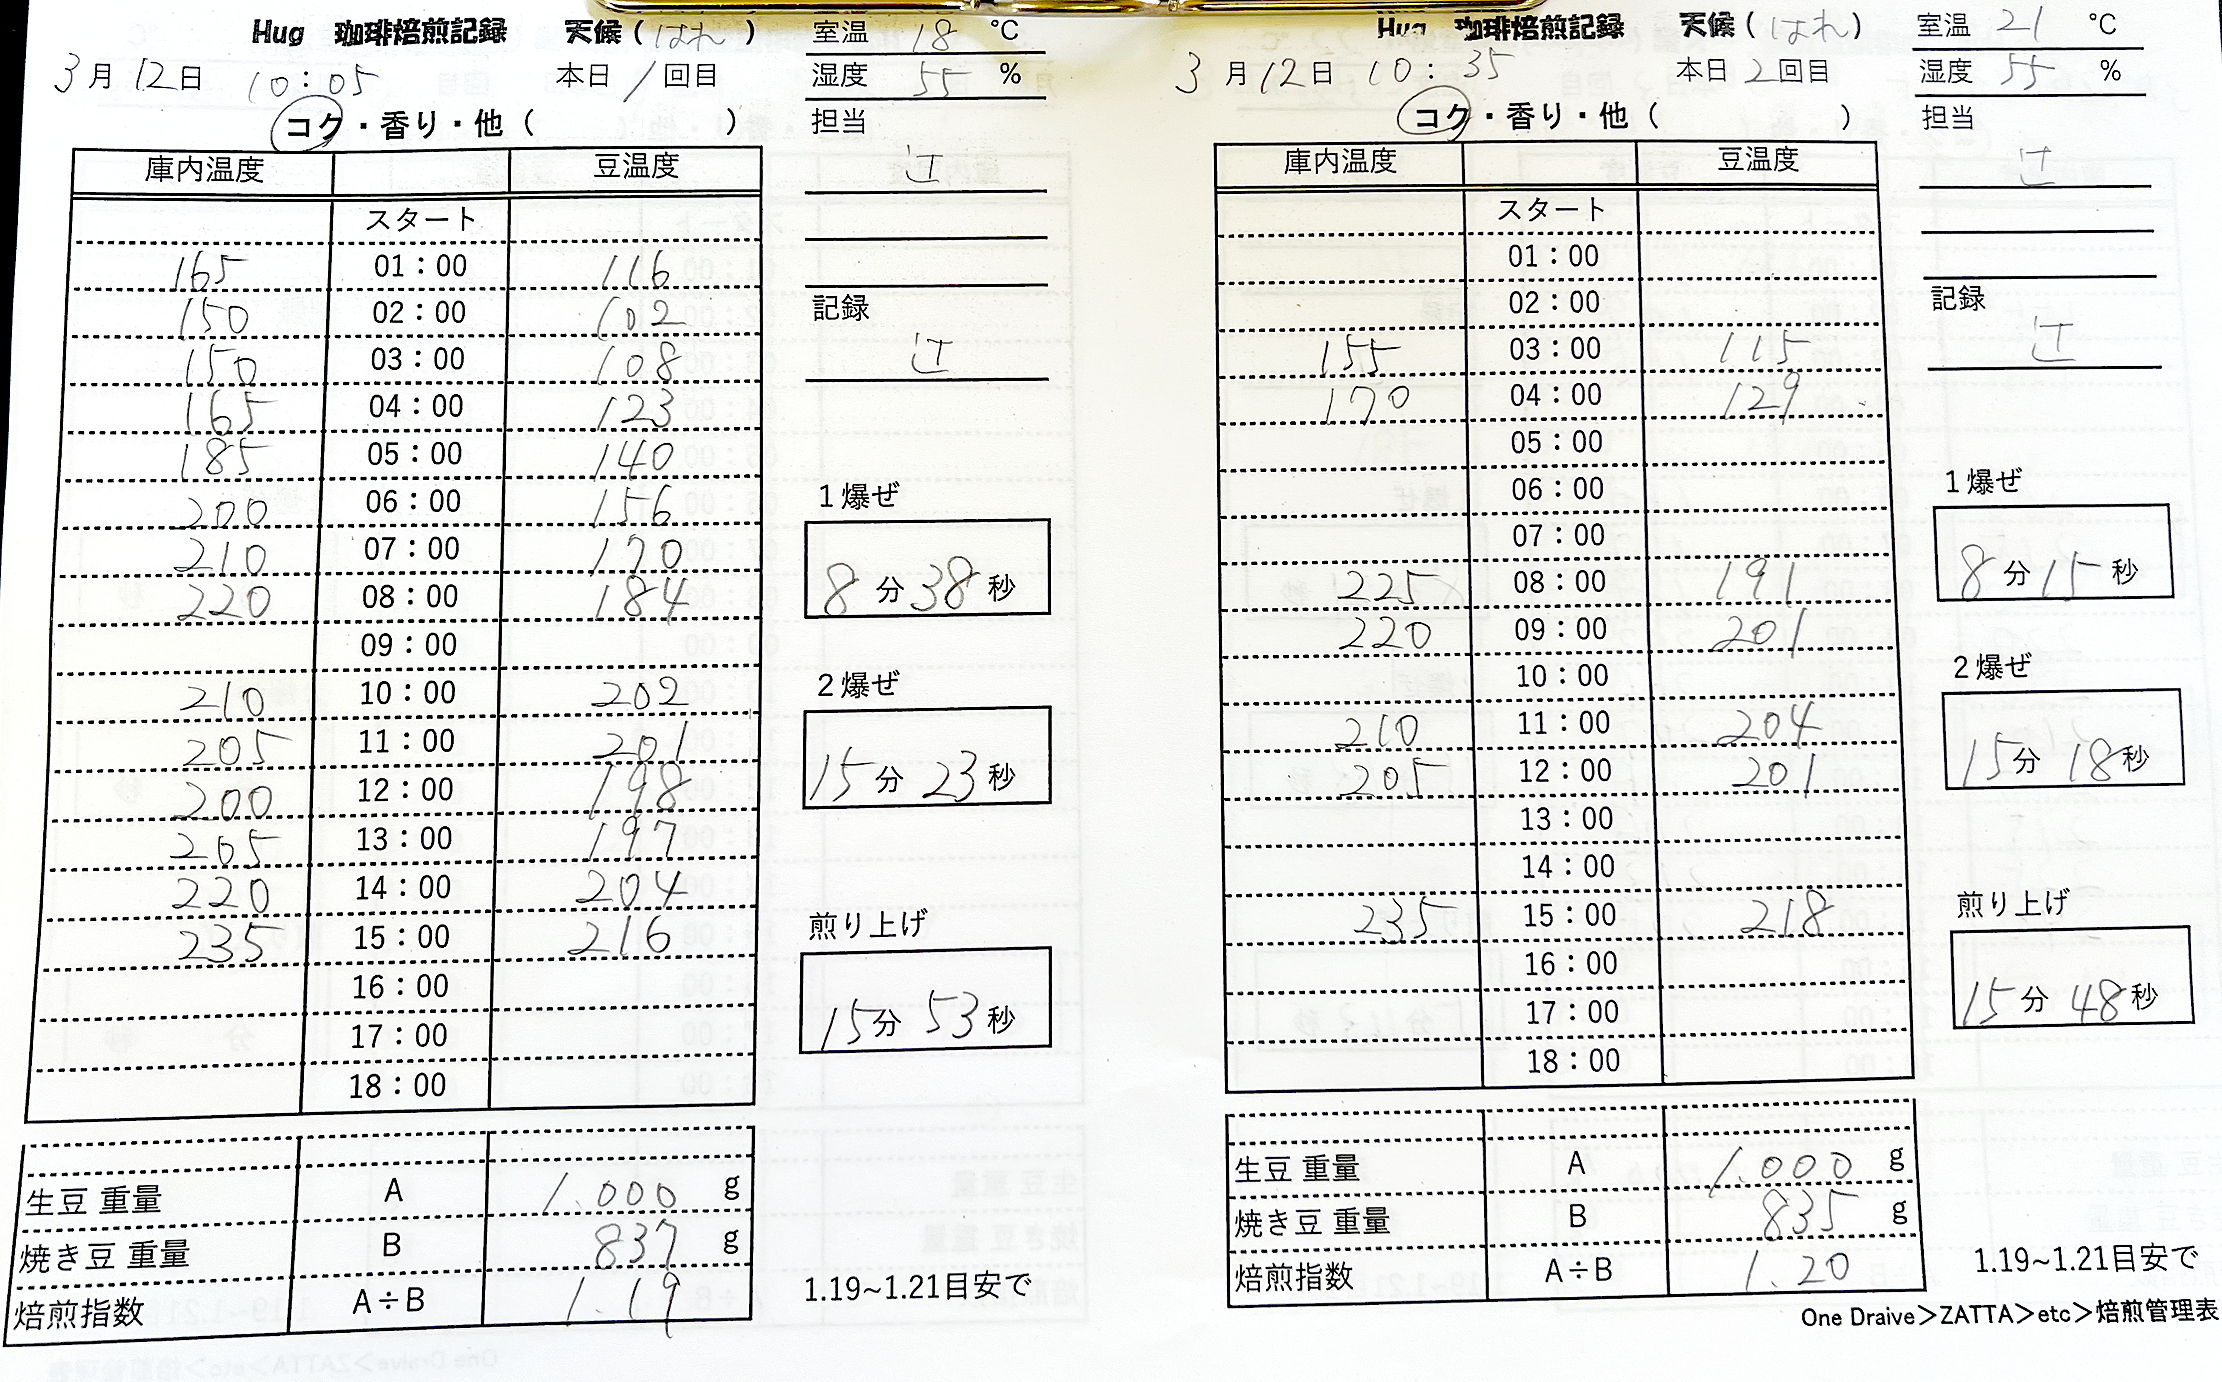 Hug 珈琲焙煎記録 天候（はれ） 室温 18 ℃
3月12日 10:05 本日1回目 湿度 55 %
コク・香り・他（ ） 担当
辻
庫内温度 豆温度
スタート
165 01：00 116
150 02：00 102
150 03：00 108
165 04：00 123
185 05：00 140
200 06：00 156
210 07：00 170
220 08：00 184
09：00
210 10：00 202
205 11：00 201
200 12：00 198
205 13：00 197
220 14：00 204
235 15：00 216
16：00
17：00
18：00
記録
辻
1爆ぜ
8分38秒
2爆ぜ
15分23秒
煎り上げ
15分53秒
生豆 重量 A 1.000 g
焼き豆 重量 B 837 g
焙煎指数 A÷B 1.19
1.19~1.21目安で
Hug 珈琲焙煎記録 天候（はれ） 室温 21 ℃
3月12日 10:35 本日2回目 湿度 55 %
コク・香り・他（ ） 担当
辻
庫内温度 豆温度
スタート
01：00
02：00
155 03：00 115
170 04：00 129
05：00
06：00
07：00
225 08：00 191
220 09：00 201
10：00
210 11：00 204
205 12：00 201
13：00
14：00
235 15：00 218
16：00
17：00
18：00
記録
辻
1爆ぜ
8分15秒
2爆ぜ
15分18秒
煎り上げ
15分48秒
生豆 重量 A 1.000 g
焼き豆 重量 B 835 g
焙煎指数 A÷B 1.20
1.19~1.21目安で
One Draive＞ZATTA＞etc＞焙煎管理表